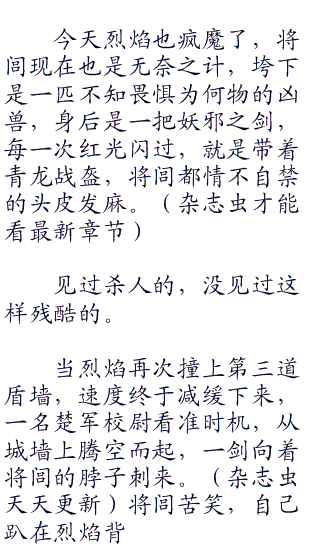 今天烈焰也疯魔了，将
闾现在也是无奈之计，垮下
是一匹不知畏惧为何物的凶
兽，身后是一把妖邪之剑，
每一次红光闪过，就是带着
青龙战盔，将闾都情不自禁
的头皮发麻。（杂志虫才能
看最新章节）
见过杀人的，没见过这
样残酷的。
当烈焰再次撞上第三道
盾墙，速度终于减缓下来，
一名楚军校尉看准时机，从
城墙上腾空而起，一剑向着
将闾的脖子刺来。（杂志虫
天天更新）将闾苦笑，自己
趴在烈焰背